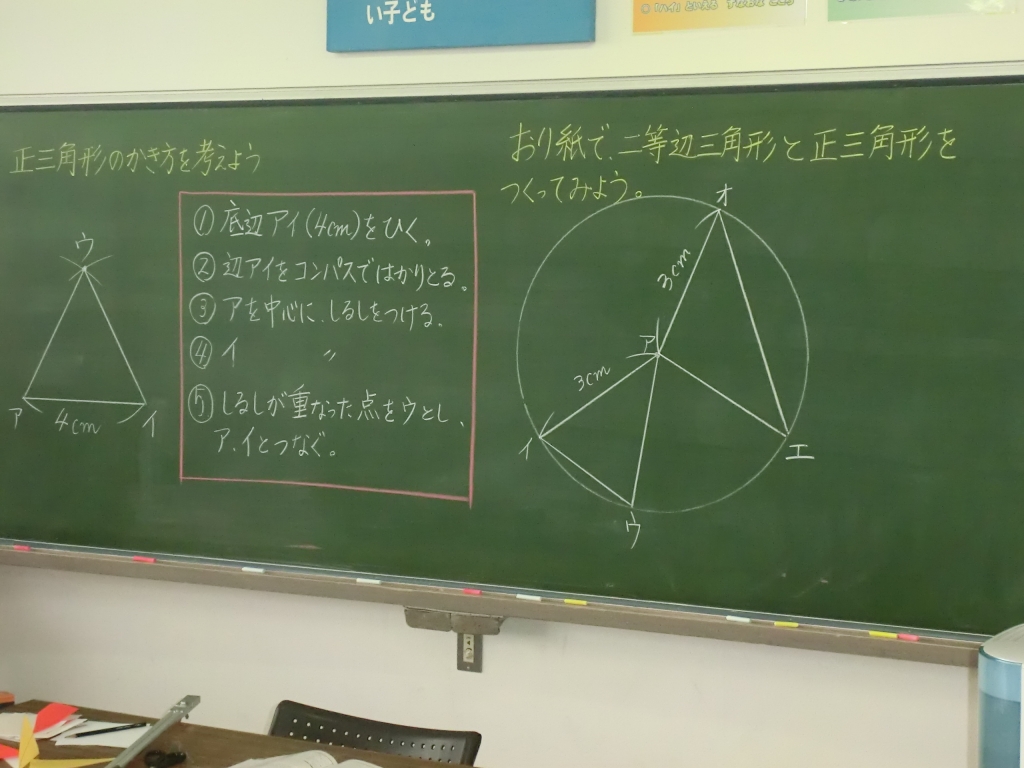 い子ども
正三角形のかき方を考えよう
ウ
ア
4cm
イ
① 底辺アイ(4cm)をひく。
② 辺アイをコンパスではかりとる。
③ アを中心に、しるしをつける。
④ イ 〃
⑤ しるしが重なった点をウとし、
ア、イとつなぐ。
おり紙で、二等辺三角形と正三角形を
つくってみよう。
オ
3cm
ア
3cm
イ
エ
ウ